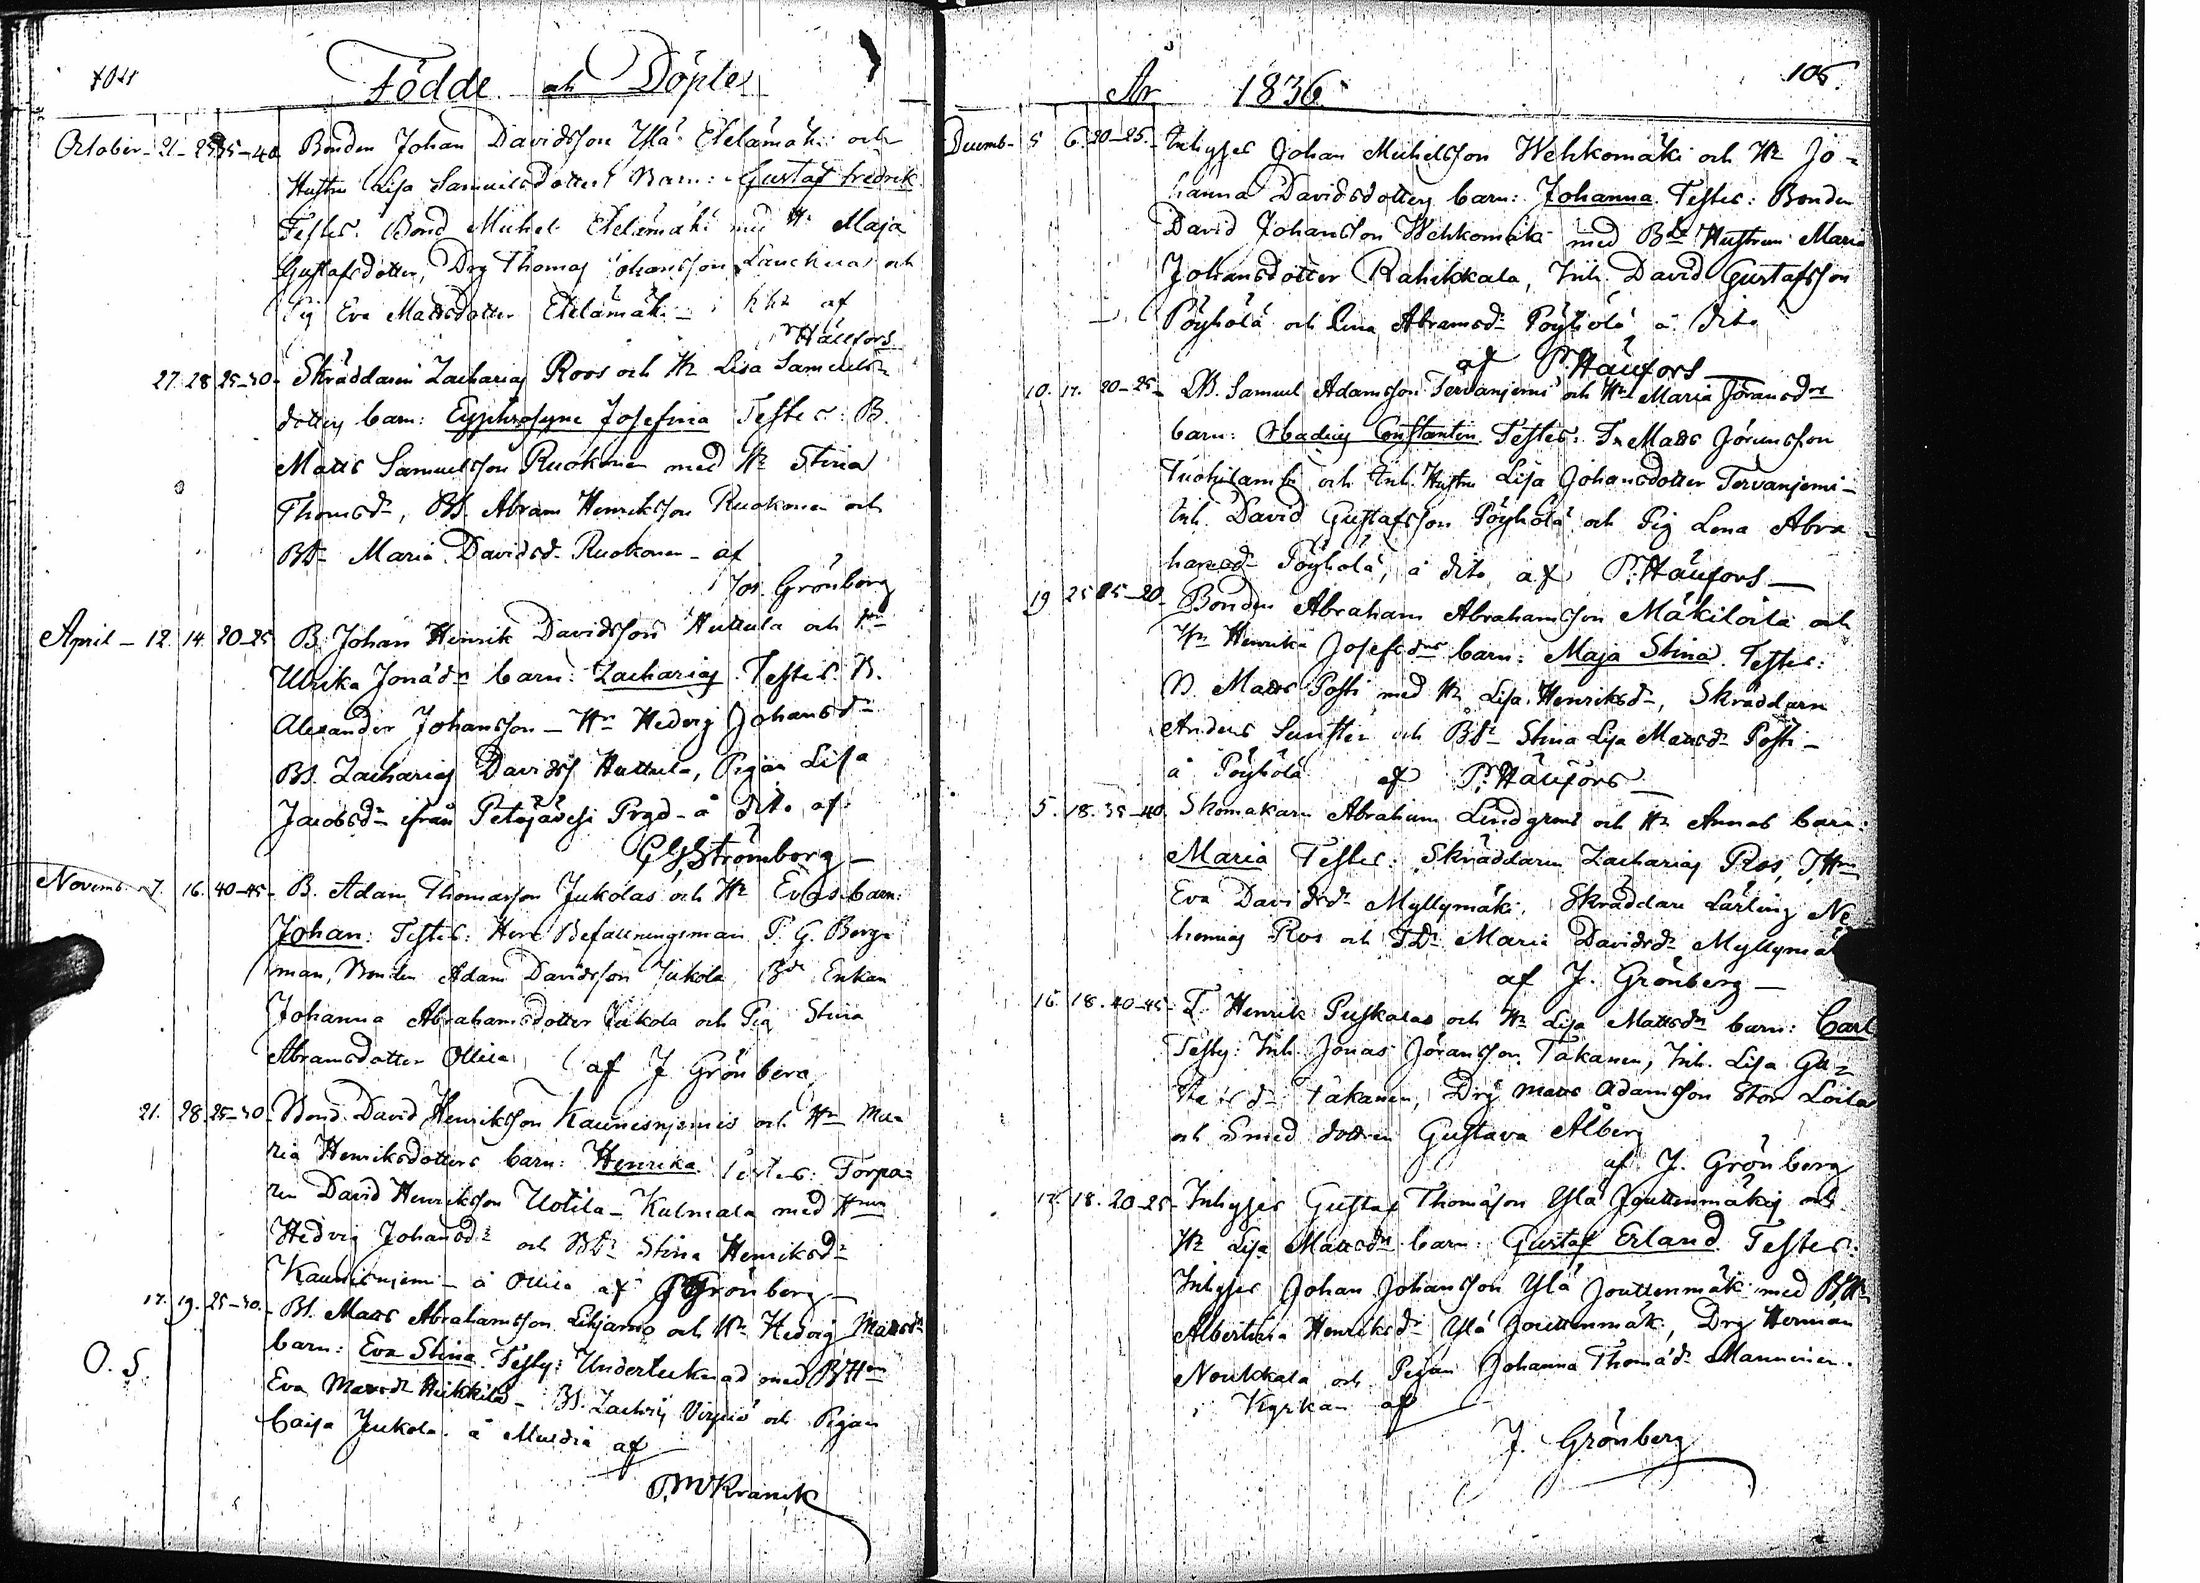 Födde och Döpte
October - 21 - 23 35-40 Bonden Johan Davidsson Ylä Etelämäki och
Hustru Lisa Samuelsdotters Barn: Gustaf Fredrik
Testes. Bond Michel Etelämäki med Hr Maja
Gustafsdotter, Drg Thomas Johansson och
Pig Eva Mattsdotter Etelämäki - i af
Häufors
27. 28 25-30 Skräddaren Zacharias Roos och Hr Lisa Samuels
dotters barn: Euphrosyne Josefina Testes: B.
Matts Samuelsson Ruokonen med Hr Stina
Thomsdr, BS. Abram Henriksson Ruokonen och
BDr Maria Davidsdr Ruokonen - af
Jos. Grönberg
April - 12. 14 20-25 B. Johan Henrik Davidsson Huttula och Hrn
Ulrika Jonädr barn: Zacharias. Testes. B.
Alexander Johansson - Hr Hedvig Johansdr
BS. Zacharias Davidss Huttula, Pigan Lisa
Jacobsdr ifrån Petäjävesi Prgd - å dito af
Strömborg -
Novemb. 7. 16. 40-45. B. Adam Thomasson Jukolas och Hr Evas barn:
Johan: Testes: Herr Befallningsman P. G. Berg-
man, Bonden Adam Davidsson Jukola, Bde Enkan
Johanna Abrahamsdotter Jukola och Pig Stina
Abramsdotter Ollila af J Grönberg
21. 28. 25-30 Bond. David Henriksson Kaunisnjemis och Hrn Ma-
ria Henriksdotters barn: Henrika Testes: Torpa-
ren David Henriksson Uotila - Kulmala med Hrun
Hedvig Johansdr och BDr Stina Henriksdr
Kaunisnjemi - å Ollila af J Grönberg -
17. 19. 25-30. BS. Matts Abrahamsson Lehjamo och Hr Hedvig Mattsdr
barn: Eva Stina. Testes: Undertecknad med BHrn
Eva Mattsdr Heikkilä - BS. Zachris och Pigan
Caisa Jukola. å af
O. S.
Kranck
År 1836.
105.
Decemb- 5 6. 20-25. Inhyses Johan Michelsson Wehkomäki och Hr Jo-
hanna Davidsdotters barn: Johanna. Testes: Bonden
David Johansson Wehkomäki med Bde Hustrun Maria
Johansdotter Rahikkala, Inh. David Gustafsson
Pöyhölä och Lena Abramsdr Pöyhölä å dito
af Pr. Häufors
10. 17. 20-25 BS. Samuel Adamsson Tervanjemi och Hr Maria Jöransdr
barn: Constantin. Testes: Matts Jöransson
och Inh. Hustru Lisa Johansdotter Tervanjemi -
Inh. David Gustafsson Pöyhölä och Pig Lena Abra
hamsdr Pöyhölä, å dito af Pr. Häufors -
19 25 25-20. Bonden Abraham Abrahamsson Mäkiloila och
Hr Henrika Josefsdrs barn: Maja Stina. Testes:
B. Matts Posti med Hr Lisa Henriksdr, Skräddarn
Anders och BDr Stina Lisa Mattsdr Posti -
å Pöyhölä af Pr. Häufors -
5. 18. 35-40. Skomakarn Abraham Lindgrens och Hr Annas barn:
Maria Testes: Skräddaren Zacharias Ros,
Eva Davidsdr Myllymäki, Skräddare Lärling Ne
hemias Ros och TDr Maria Davidsdr
af J. Grönberg -
16 18. 40-45- T. Henrik Puskalas och Hr Lisa Mattsdr barn: Carl
Testes: Inh. Jonas Jöransson Takanen, Inh. Lisa Gu-
stafsdr Takanen, Drg Matts Adamsson Stor Loila
och Smed dottren Gustava Alberg
af J. Grönberg
17. 18. 20-25- Inhyses Gustaf Thomasson Ylä Jouttenmäkis och
Hr Lisa Mattsdr barn: Gustaf Erland. Testes:
Inhyses Johan Johansson Ylä Jouttenmäki med
Albertina Henriksdr Ylä Jouttenmäk, Drg Herman
Noukkala och Pigan Johanna Thomädr Manninen.
i Kyrkan af
J. Grönberg